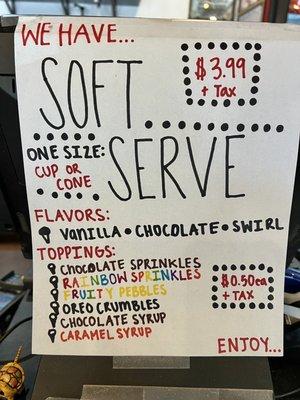 WE HAVE...
SOFT
SERVE
$3.99
+ TAX
ONE SIZE:
CUP OR
CONE
FLAVORS:
VANILLA • CHOCOLATE • SWIRL
TOPPINGS:
CHOCOLATE SPRINKLES
RAINBOW SPRINKLES
FRUITY PEBBLES
OREO CRUMBLES
CHOCOLATE SYRUP
CARAMEL SYRUP
$0.50ea
+ TAX
ENJOY...